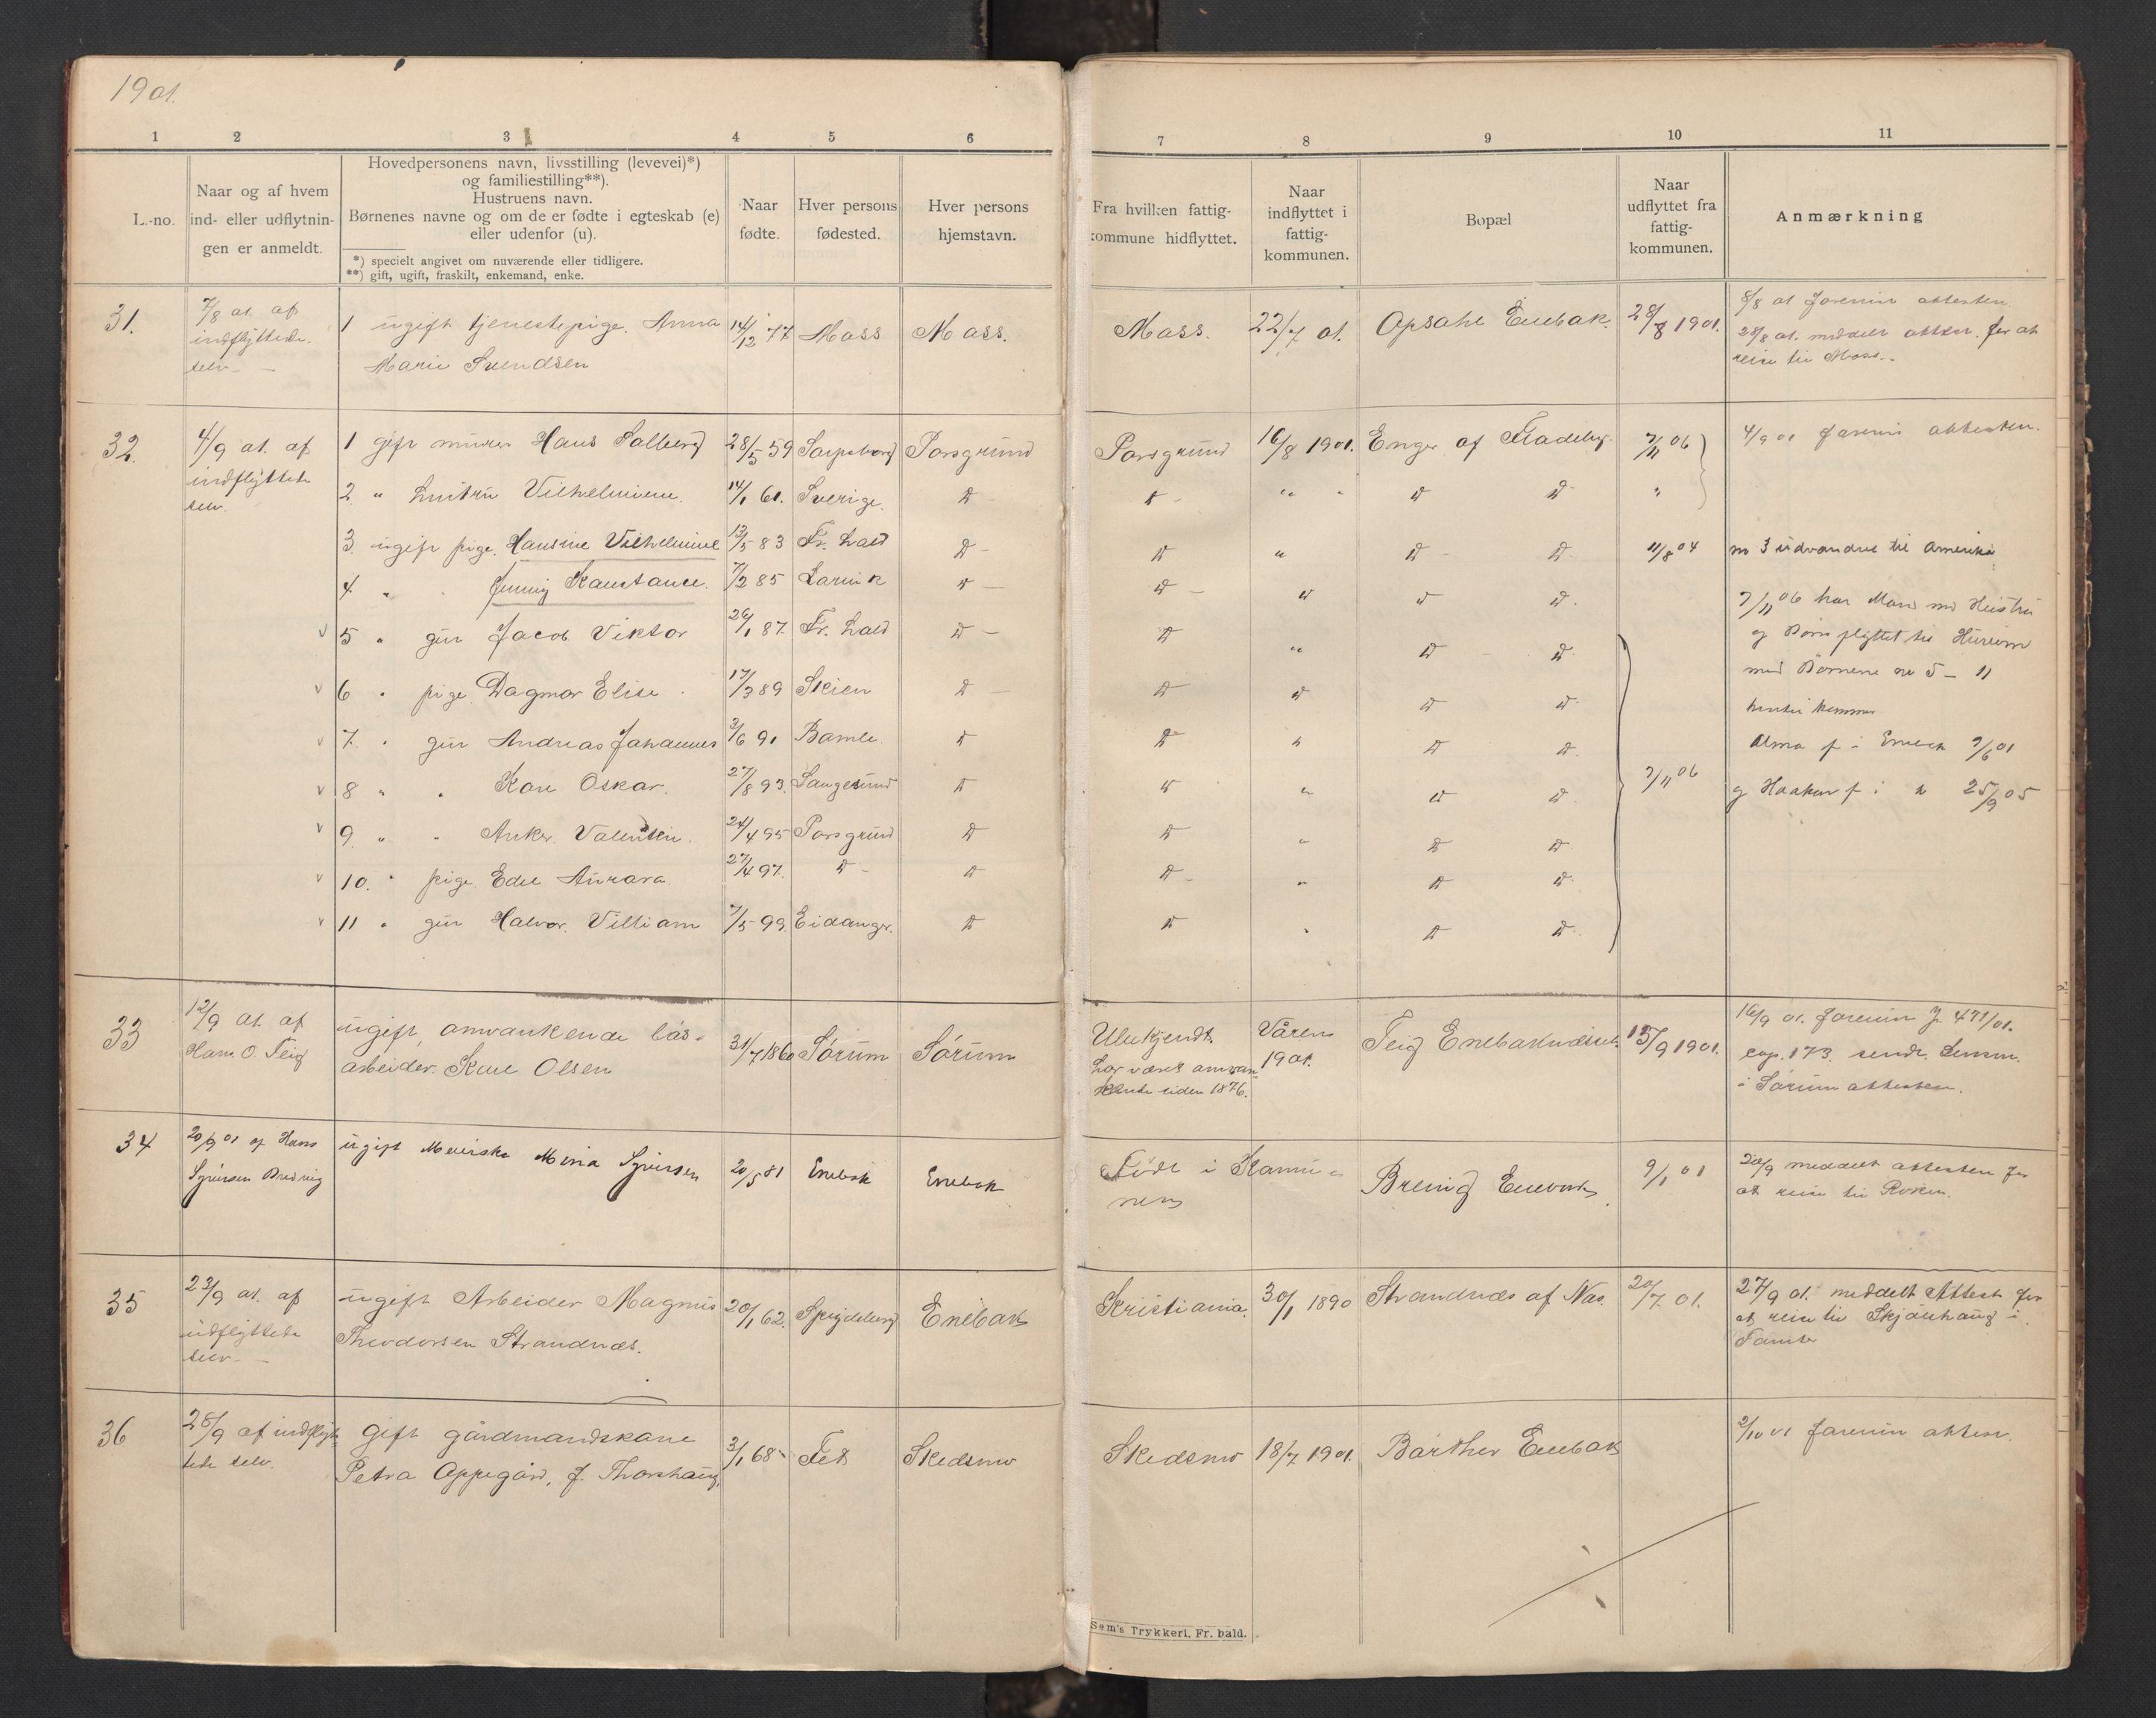 1901.
1 2 3 4 5 6
L.-no.
Naar og af hvem
ind- eller udflytnin-
gen er anmeldt.
Hovedpersonens navn, livsstilling (levevei)*)
og familiestilling**).
Hustruens navn.
Børnenes navne og om de er fødte i egteskab (e)
eller udenfor (u).
*) specielt angivet om nuværende eller tidligere.
**) gift, ugift, fraskilt, enkemand, enke.
Naar
fødte.
Hver persons
fødested.
Hver persons
hjemstavn.
31. 7/8 01. af 1 ugift tjenestepige. Anna 14/12 77 Moss Moss.
indflyttede.
selv. Marie Svendsen
32. 4/9 01. af 1 gift murer Hans Solberg 28/5 59 Sarpsborg Porsgrund
indflyttede
selv.
2 " hustru Vilhelmine. 14/1 61. Sverige. D
3 ugift pige. Hansine Vilhelmine 13/5 83 Fr. hald D
4 " Jenny Konstance. 7/2 85 Larvik D
v 5 " gut Jacob Viktor 26/1 87. Fr. hald D
v 6 " pige Dagmar Elise 17/3 89 Skien D
v 7. " gut Andreas Johannes 3/6 91 Bamle D
v 8 " " Karl Oskar. 27/8 93. Langesund D
v 9 " " Anker Valentin. 24/4 95 Porsgrund D
v 10. " pige. Edel Aurora. 27/4 97. D D
v 11 " gut Halvor. Villiam 7/5 99. Eidanger. D
33 12/9 01. af ugift, omvankende løs-
Hans O. Teig arbeider. Karl Olsen 31/7 1860 Sørum Sørum
34 20/9 01 af Hans ugift Meierske Mina Syversen 20/5 81 Enebak Enebak
Syversen
35 23/9 01. af ugift Arbeider Magnus 20/1 62. Spydeberg Enebak
udflyttede Theodorsen Strandnæs.
selv.
36 28/9 af indflyt- gift gårdmandskone 3/1 68 Fet Skedsmo
tede selv. Petra Oppegård, f. Thorshaug.
7 8 9 10 11
Fra hvilken fattig-
kommune hidflyttet.
Naar
indflyttet i
fattig-
kommunen.
Bopæl
Naar
udflyttet fra
fattig-
kommunen.
Anmærkning
Moss. 22/7 01. Opsahl Enebak. 28/8 1901. 8/8 01 forevin attesten.
28/8 01. meddelt attest. for at
reise til Moss.
Porsgrund 16/8 1901. Enger af Fladeby. 7/11 06 4/9 01 forevin attesten.
D " " D D "
D " D D 11/8 04 no 3 udvandret til Amerika
D D D D 7/11 06 har Mand med Hustru
D " D D og Børn flyttet til Hurum
D D D D med Børnene no 5 - 11
D " D D Alma f i Enebak 7/6 01
D " D D 7/11 06 g Haakon f i " 25/9 05
D " D D
D " D D
D " D D
Ubekjendt. Våren Teig 15/9 1901. 16/9 01. forevin J. 471/01.
har været omvan- 1901. cop. 173. sendt Lensm.
kende siden 1876. i Sørum attesten.
Født i Kommu-
nen Enebak 9/1 01 20/9 meddelt attesten for
at reise til
Kristiania. 30/1 1890 Strandnæs af Næs. 20/7 01. 27/9 01. meddelt Attest for
at reise til i
Skedsmo 18/7 1901. Enebak 2/10 01 forevin attest.
Sem's Trykkeri, Fr. hald.